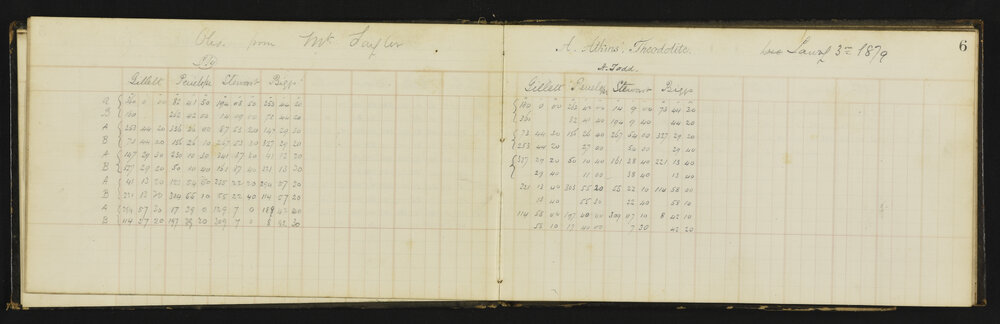 Obs. from Mt Taylor.
Gillett Penelope Stewart Biggs
A 260 0 00 82 41 50 194 08 50 253 44 20
B 180 262 42 00 14 09 00 73 44 20
A 253 44 20 336 26 00 87 53 20 147 29 30
B 73 44 20 156 26 10 267 53 20 327 29 20
A 147 29 30 230 10 30 341 37 20 41 13 20
B 50 10 40 161 37 40 221 13 20
A 41 13 20 54 50 22 20 57 30
B 221 13 20 304 55 10 55 22 40 114 57 20
A 57 30 17 39 0 129 7 0 42 40
B 114 57 20 197 39 20 309 7 0 8 42 30
A. Atkins' Theodolite. 3rd 1879
6
A. Todd.
Gillett Penelope Stewart Biggs
180 0 00 262 42 00 14 9 00 73 44 30
82 41 40 194 9 40 44 20
73 44 20 156 26 40 267 54 00 327 29 20
253 44 20 27 00 54 00 29 40
327 29 20 50 10 40 161 38 40 221 13 40
29 40 11 00 38 40 13 40
221 13 40 303 55 20 55 22 10 114 58 00
13 40 55 30 22 40 58 10
114 58 197 40 00 309 07 10 8 42 10
58 10 17 40 00 7 30 42 20